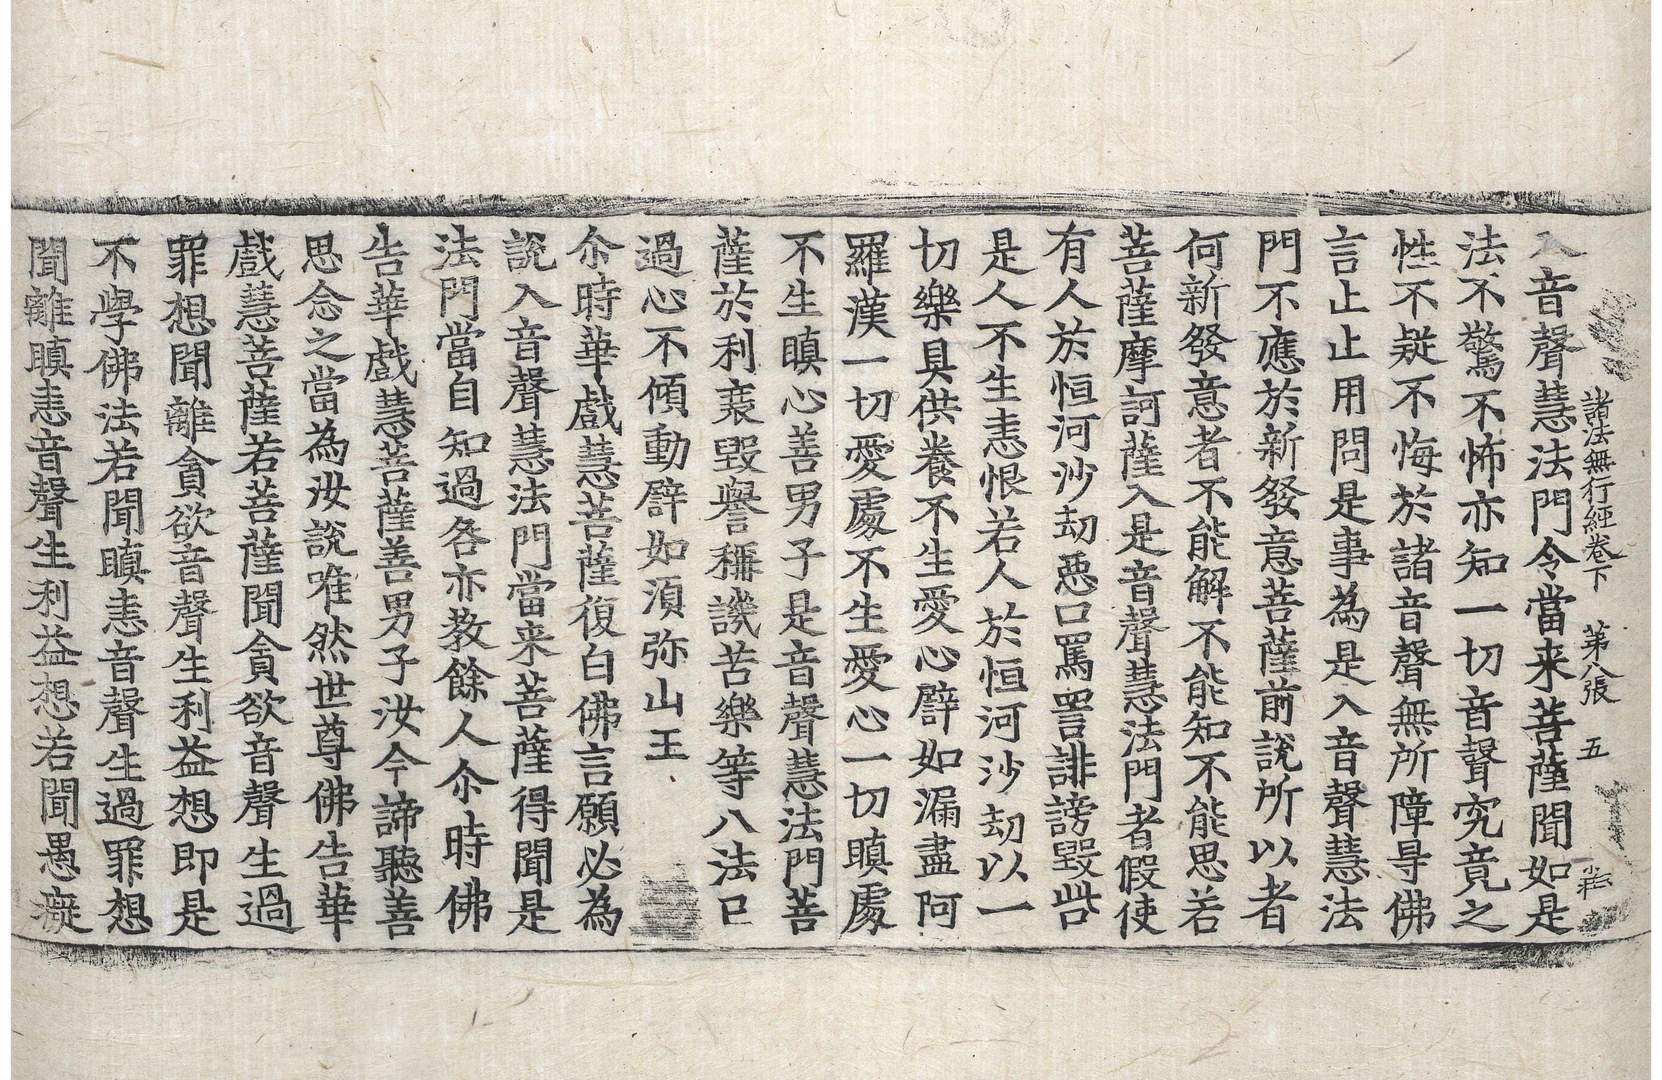 諸法無行經卷下　第八張　五
入音聲慧法門令當来菩薩聞如是
法不驚不怖亦知一切音聲究竟之
性不疑不悔於諸音聲無所障导佛
言止止用問是事為是入音聲慧法
門不應於新發意菩薩前說所以者
何新發意者不能解不能知不能思若
菩薩摩訶薩入是音聲慧法門者假使
有人於恒河沙劫惡口罵詈誹謗毀呰
是人不生恚恨若人於恒河沙劫以一
切樂具供養不生愛心譬如漏盡阿
羅漢一切愛處不生愛心一切瞋處
不生瞋心善男子是音聲慧法門菩
薩於利衰毀譽稱譏苦樂等八法已
過心不傾動譬如湏弥山王
尒時華戲慧菩薩復白佛言願必為
說入音聲慧法門當来菩薩得聞是
法門當自知過咎亦教餘人尒時佛
告華戲慧菩薩善男子汝今諦聽善
思念之當為汝說唯然世尊佛告華
戲慧菩薩若菩薩聞貪欲音聲生過
罪想聞離貪欲音聲生利益想即是
不學佛法若聞瞋恚音聲生過罪想
聞離瞋恚音聲生利益想若聞愚癡